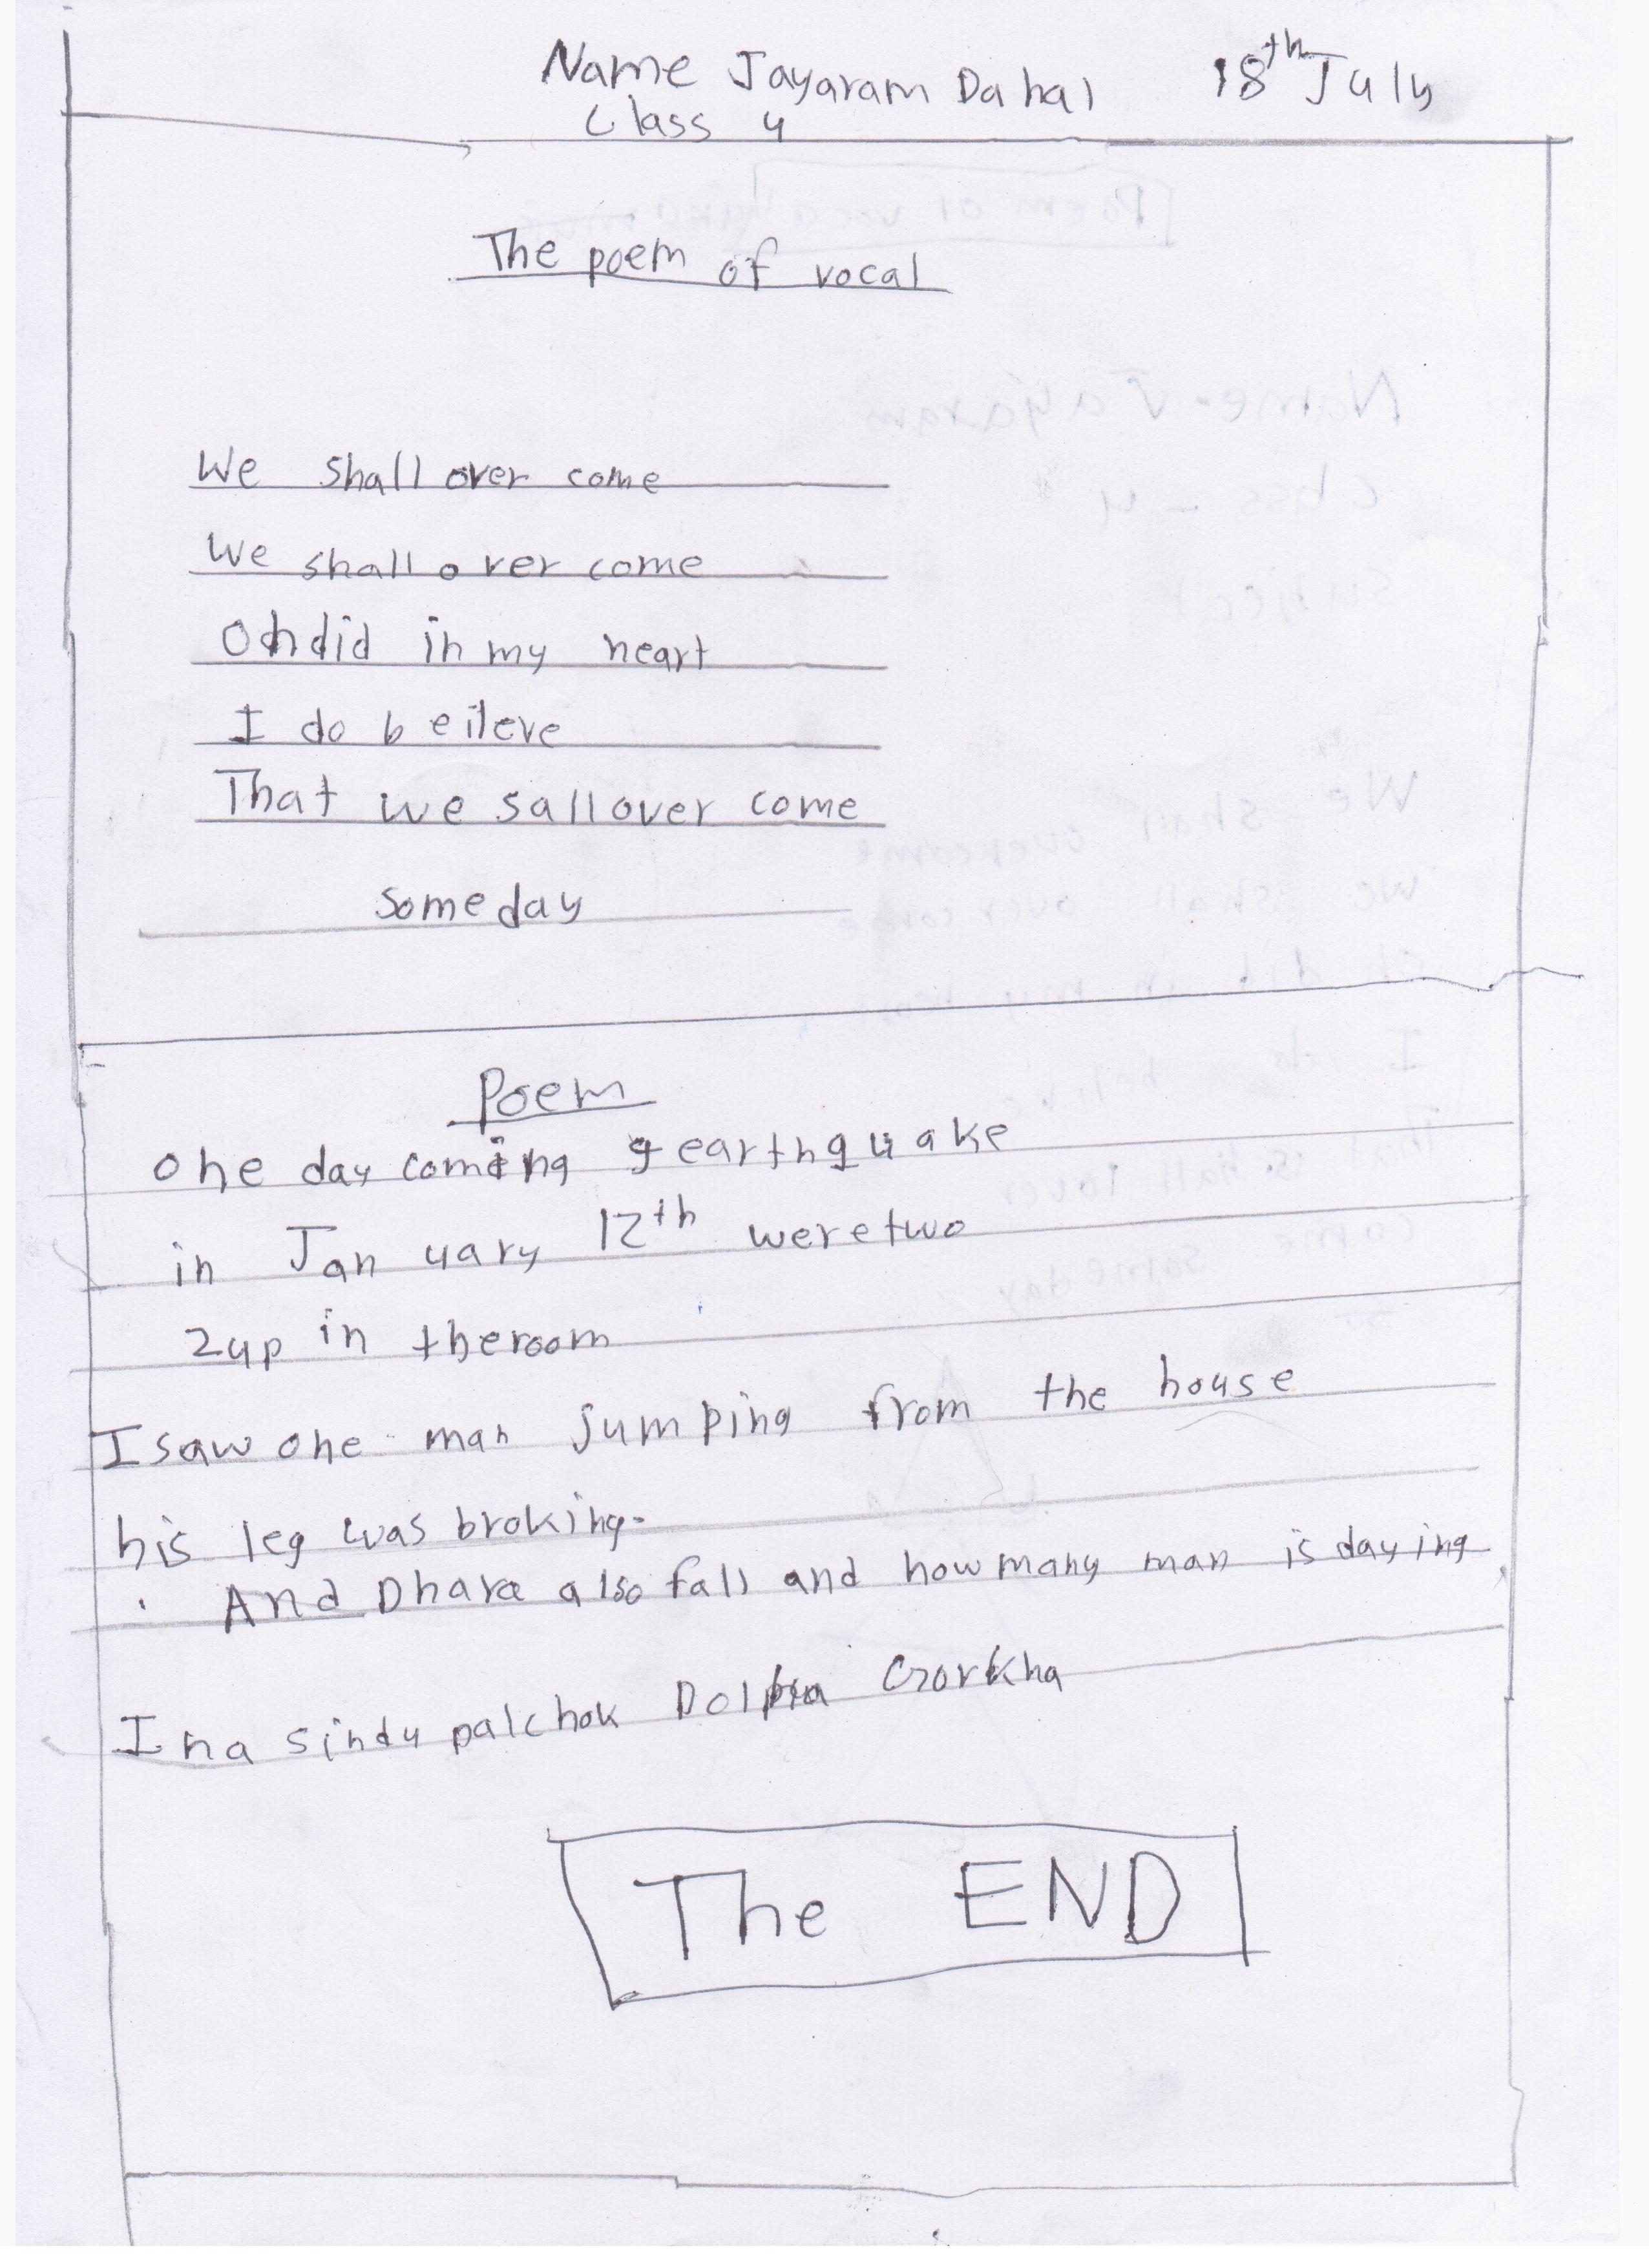 Name Jayaram Dahal 18th July
Class 4
The poem of vocal
We shall over come
We shall over come
Oh did in my heart
I do beileve
That we sall over come
Someday
Poem
one day coming earthquake
in January 12th were two
2up in the room
I saw one man jumping from the house
his leg was broking.
And Dhara also fall and how many man is daying
In a sindupalchok Gorkha
The END